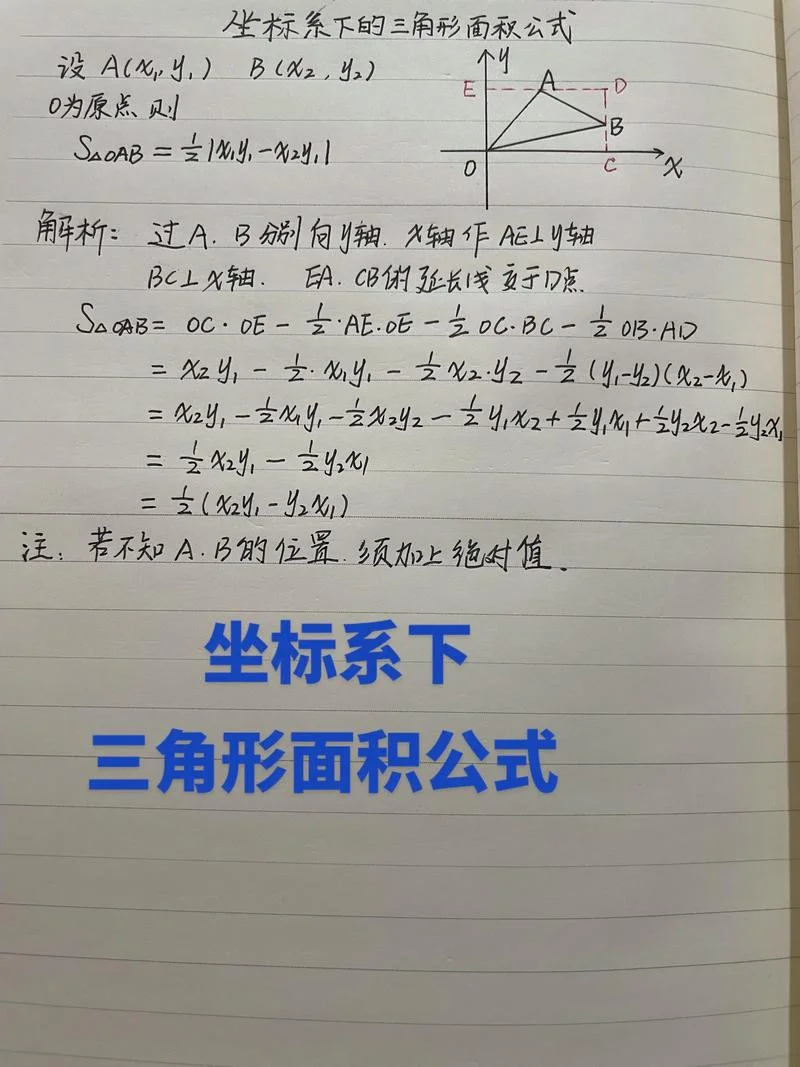 坐标系下的三角形面积公式
设 A(x₁,y₁) B(x₂,y₂)
O为原点 则
S△OAB = ½|x₁y₁-x₂y₁|
y
E A D
B
O C x
解析: 过A.B分别向y轴.x轴作AE⊥y轴
BC⊥x轴. EA.CB的延长线交于D点.
S△OAB = OC·OE - ½·AE·OE - ½OC·BC - ½DB·AD
= x₂y₁ - ½·x₁y₁ - ½x₂·y₂ - ½(y₁-y₂)(x₂-x₁)
= x₂y₁ - ½x₁y₁ - ½x₂y₂ - ½y₁x₂ + ½y₁x₁ + ½y₂x₂ - ½y₂x₁
= ½x₂y₁ - ½y₂x₁
= ½(x₂y₁-y₂x₁)
注: 若不知A.B的位置.须加上绝对值.
坐标系下
三角形面积公式